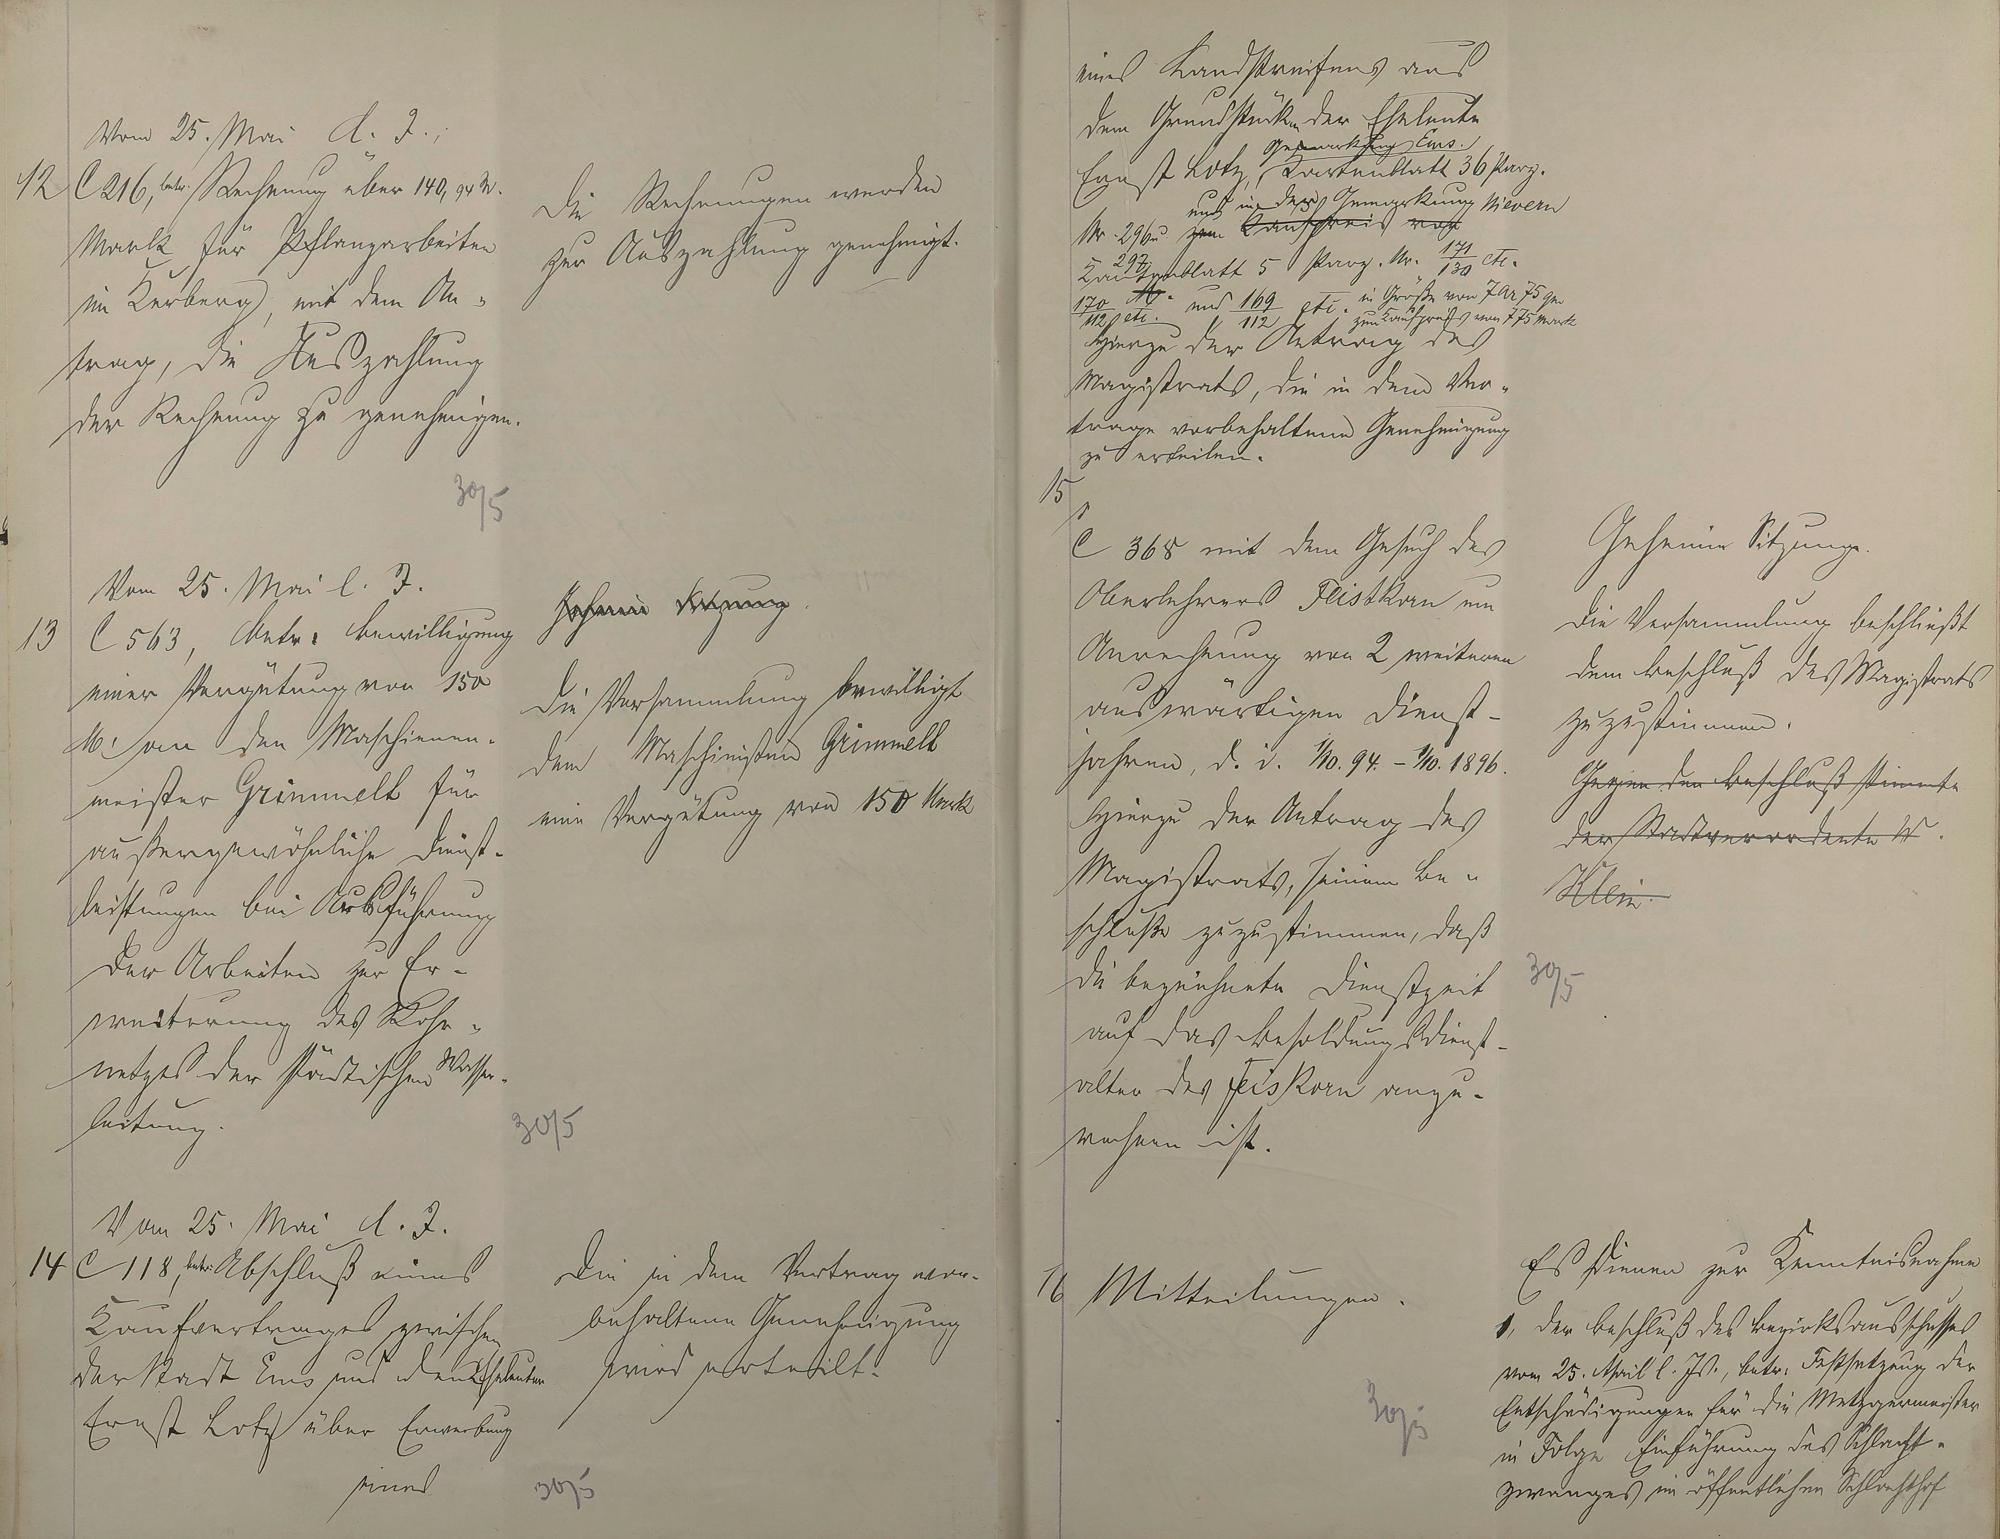 Vom 25. Mai d. J.,
12 C 216, betr. Rechnung über 140,94 M.
Mark für Pflanzarbeiten
im Kerberg, mit dem An-
trag, die Auszahlung
der Rechnung zu genehmigen.
30/5
Die Rechnungen werden
zur Auszahlung genehmigt.
Vom 25. Mai l. J.
13 C 563, betr. Bewilligung
einer Vergütung von 150
M. an den Maschienen-
meister Grimmell für
außergewöhnliche Dienst-
leistungen bei Ausführung
der Arbeiten zur Er-
weiterung des Rohr-
netzes der städtischen Wasser-
leitung.
30/5
Geheime Sitzung.
Die Versammlung bewilligt
dem Maschinisten Grimmell
eine Vergütung von 150 Mark
Vom 25. Mai d. J.
14 C 118, betr. Abschluß eines
Kaufvertrages zwischen
der Stadt Ems und den Eheleuten
Ernst Lotz über Erwerbung
eines
30/5
Die in dem Vertrag vor-
behaltene Genehmigung
wird erteilt.
eines Landstreifens aus
dem Grundstück der Eheleute
Gemarkung Ems.
Ernst Lotz, Kartenblatt 36 Parz.
und in der Gemarkung Nievern
Nr. 296 u. zum Kaufpreis von
297
Kartenblatt 5 Parz. Nr. 171/130 etc.
170/112 etc. und 169/112 etc. in Größe von 7 ar 75 qm
zum Kaufpreis von 775 Mark
Hierzu der Antrag des
Magistrats, die in dem Ver-
trage vorbehaltene Genehmigung
zu erteilen.
15
C 368 mit dem Gesuch des
Oberlehrers Feistkorn um
Anrechnung von 2 weiteren
auswärtigen Dienst-
jahren, d. i. 1/10. 94. - 1/10. 1896.
Hierzu der Antrag des
Magistrats, seinem Be-
schluße zuzustimmen, daß
die bezeichnete Dienstzeit
auf das Besoldungsdienst-
alter des Feiskorn anzu-
rechnen ist.
Geheime Sitzung.
Die Versammlung beschließt
dem Beschluß des Magistrats
zuzustimmen.
Gegen den Beschluß stimmte
der Stadtverordnete W.
Klein.
30/5
16 Mitteilungen.
30/5
Es dienen zur Kenntnisnahme
1, der Beschluß des Bezirksausschusses
vom 25. April l. Js., betr. Festsetzung der
Entschädigungen für die Metzgermeister
in Folge Einführung des Schlacht-
zwanges im öffentlichen Schlachthof